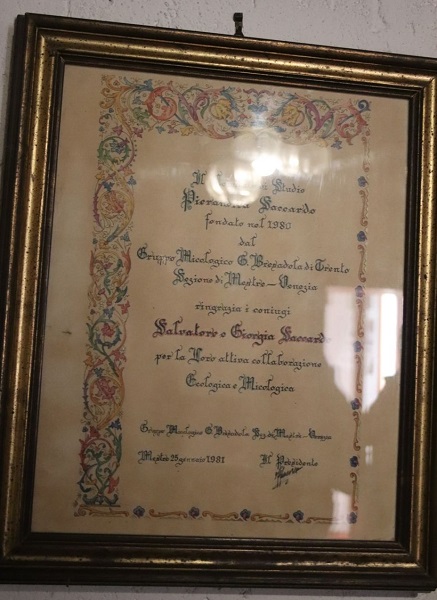 Il Studio
Saccardo
fondato nel 1980
dal
Gruppo Micologico G. Bresadola di Trento
Sezione di Mestre - Venezia
ringrazia i coniugi
Salvatore e Giorgia Saccardo
per la Loro attiva collaborazione
Ecologica e Micologica
Gruppo Micologico G. Bresadola Sez. di Mestre - Venezia
Mestre 25 gennaio 1981 Il Presidente